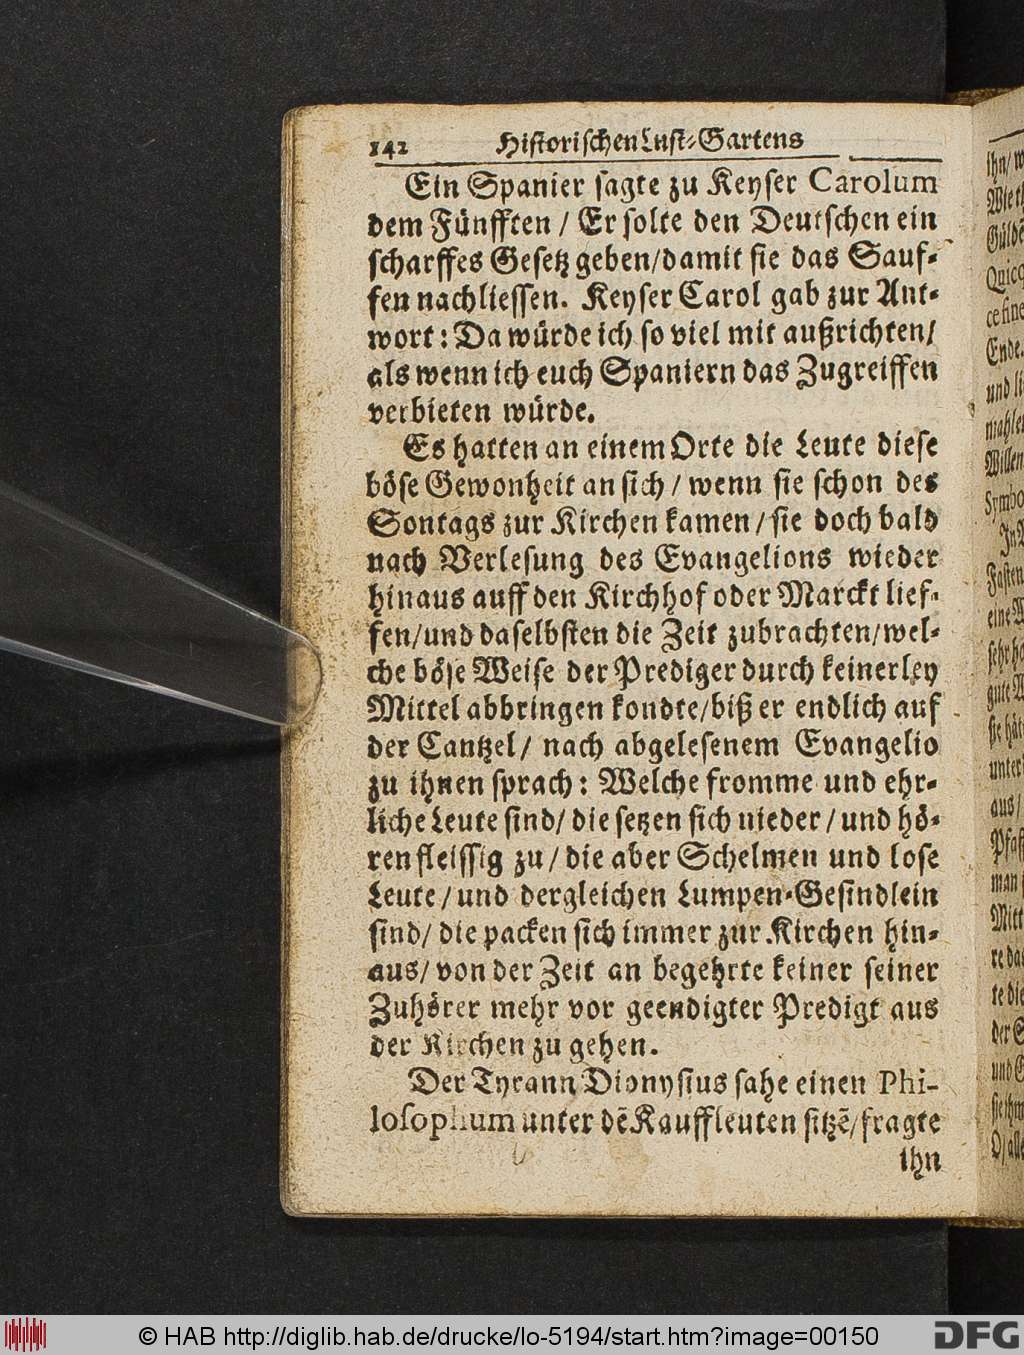 142 Historischen Lust-Gartens
Ein Spanier sagte zu Keyser Carolum
dem Fünfften / Er solte den Deutschen ein
scharffes Gesetz geben/damit sie das Sauf-
fen nachliessen. Keyser Carol gab zur Ant-
wort: Da würde ich so viel mit außrichten/
als wenn ich euch Spaniern das Zugreiffen
verbieten würde.
Es hatten an einem Orte die Leute diese
böse Gewonheit an sich / wenn sie schon des
Sontags zur Kirchen kamen / sie doch bald
nach Verlesung des Evangelions wieder
hinaus auff den Kirchhof oder Marckt lief-
fen/und daselbsten die Zeit zubrachten/wel-
che böse Weise der Prediger durch keinerley
Mittel abbringen kondte/biß er endlich auf
der Cantzel/ nach abgelesenem Evangelio
zu ihnen sprach: Welche fromme und ehr-
liche Leute sind/ die setzen sich nieder / und hö-
ren fleissig zu / die aber Schelmen und lose
Leute / und dergleichen Lumpen-Gesindlein
sind/ die packen sich immer zur Kirchen hin-
aus/ von der Zeit an begehrte keiner seiner
Zuhörer mehr vor geendigter Predigt aus
der Kirchen zu gehen.
Der Tyrann Dionysius sahe einen Phi-
losophum unter dē Kauffleuten sitzē/fragte
ihn
ihn/
Quic
Ende.
und
Symbo
In
Fasten
eine
gute
unter
aus/
man
Mitt
te die
und
© HAB http://diglib.hab.de/drucke/lo-5194/start.htm?image=00150
DFG